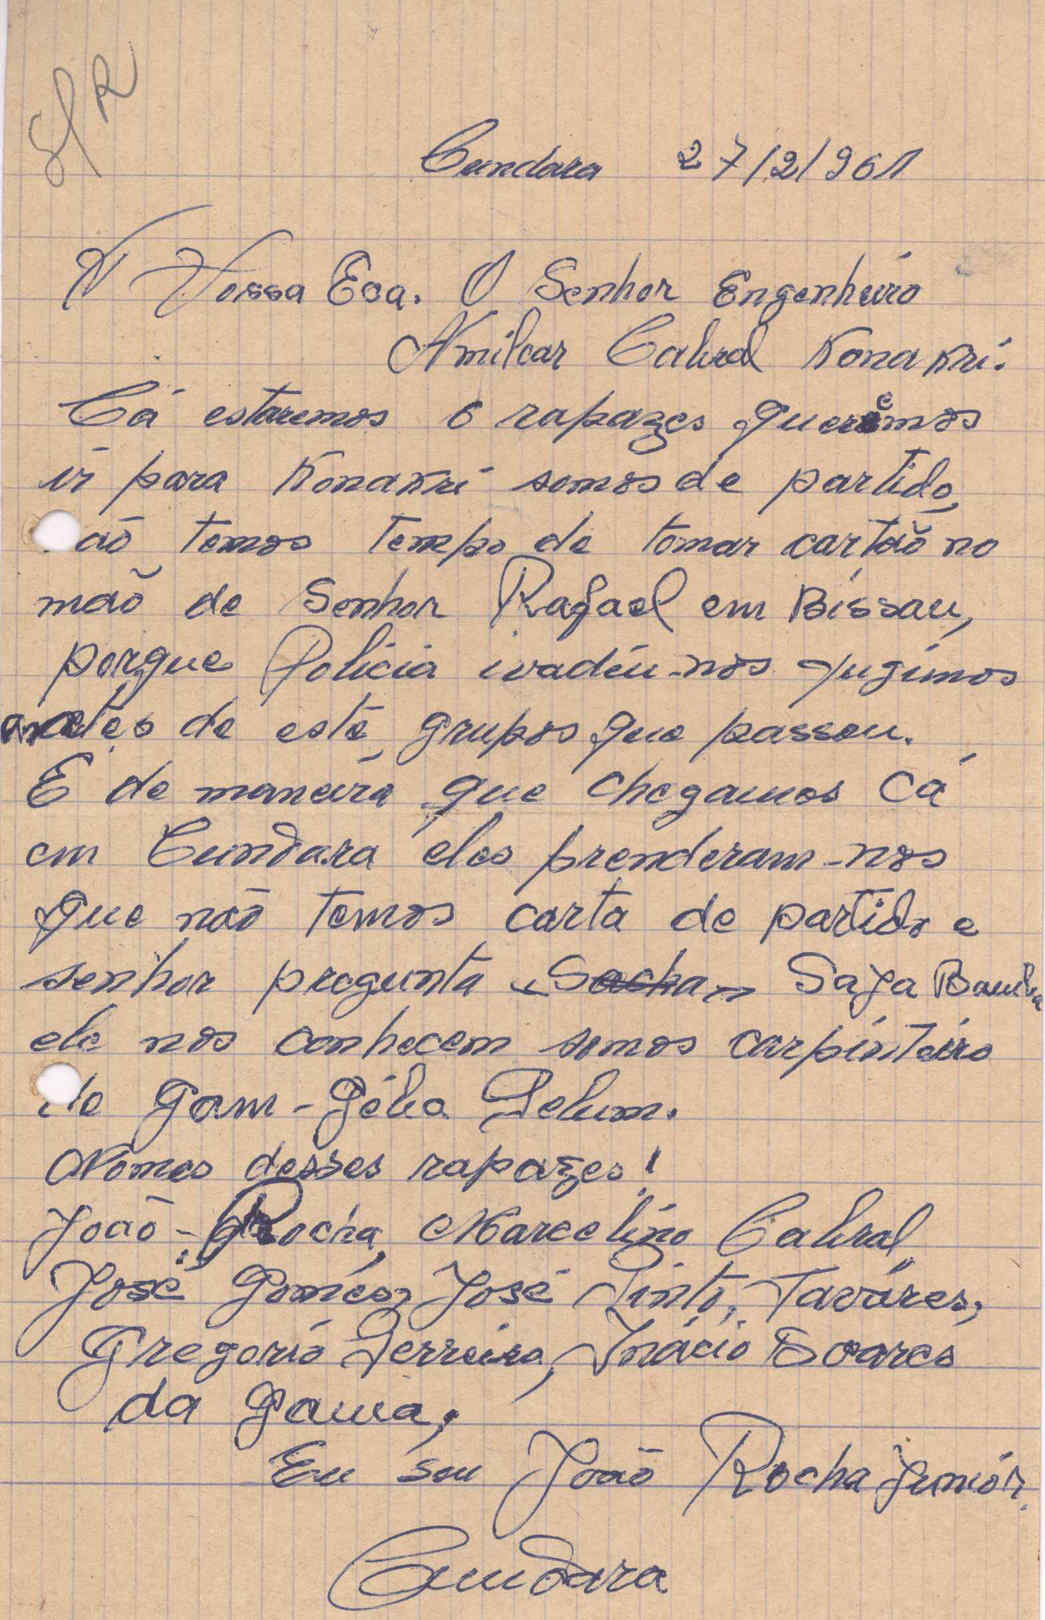 S/R
Cundara 27/2/961
A Vossa Eca. O Senhor Engenheiro
Amilcar Cabral Konakri.
Cá estaremos 6 rapazes querêmos
ir para Konakri somos de partido,
ão temos tempo de tomar cartão no
mão de Senhor Rafael em Bissau,
porque Policia ivadiu-nos fugimos
antes de este grupos que passou.
E de maneira que chegamos cá
em Cundara eles prenderam-nos
que não temos carta de partido e
senhor pregunta "Sacha" Saja Bamba
ele nos conhecem somos carpinteiro
de Gam-
Nomes desses rapazes!
João Rocha, Marcelino Cabral,
José Gomes, José Pinto, Taváres,
Gregorio Ferreira, Inácio Soares
da Gama.
Eu sou João Rocha Juniór.
Cundara